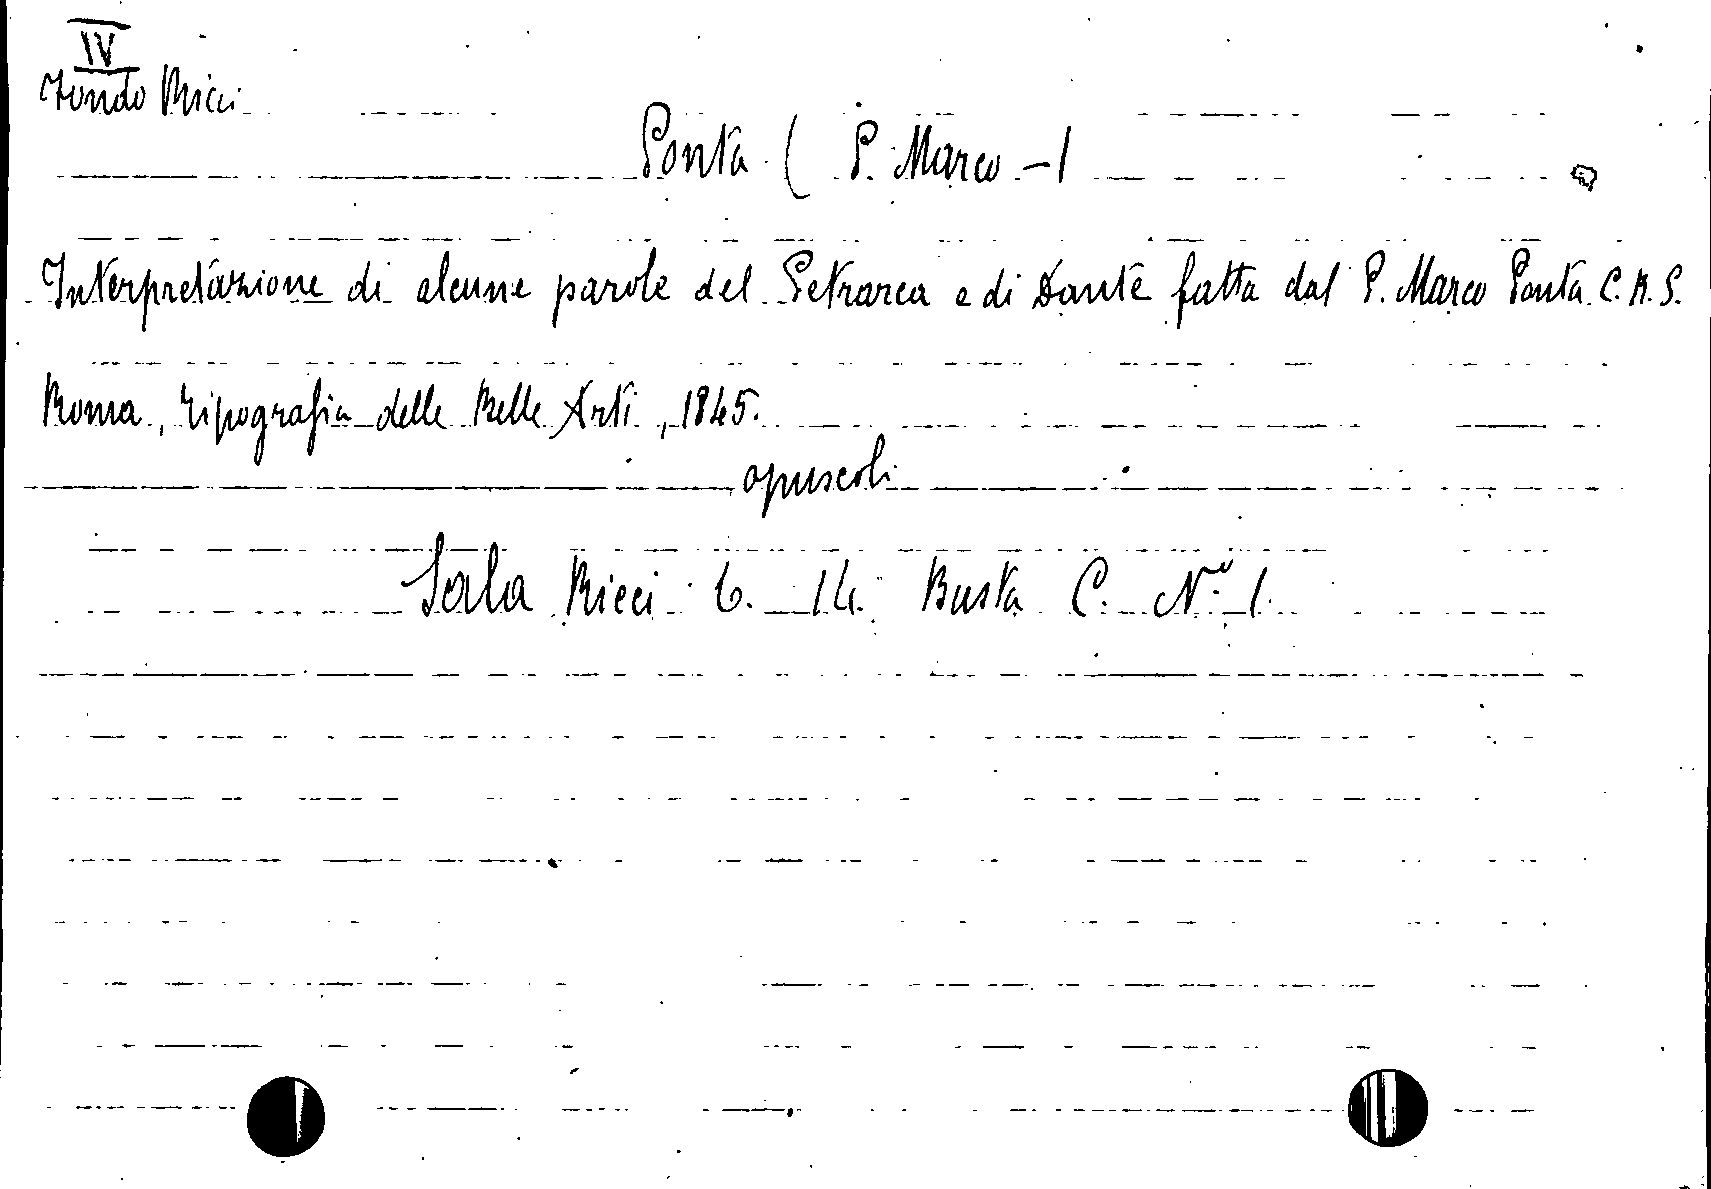 IV
Fondo Ricci
Ponta ( P. Marco - )
Interpretazione di alcune parole del Petrarca e di Dante fatta dal P. Marco Ponta C. R. S.
Roma, tipografia delle Belle Arti, 1845.
opuscoli
Sala Ricci 6. 14. Busta C. N.º 1.